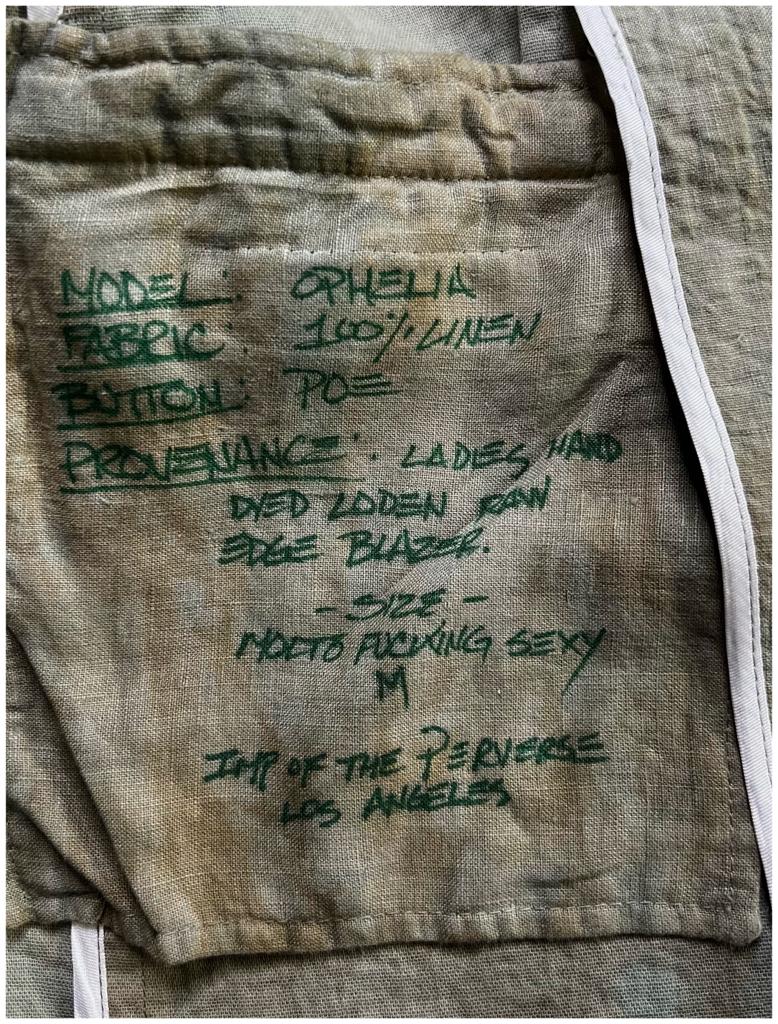 MODEL: OPHELIA
FABRIC: 100% LINEN
BUTTON: POE
PROVENANCE: LADIES HAND
DYED LODEN RAW
EDGE BLAZER.
- SIZE -
MOLTO FUCKING SEXY
M
IMP OF THE PERVERSE
LOS ANGELES